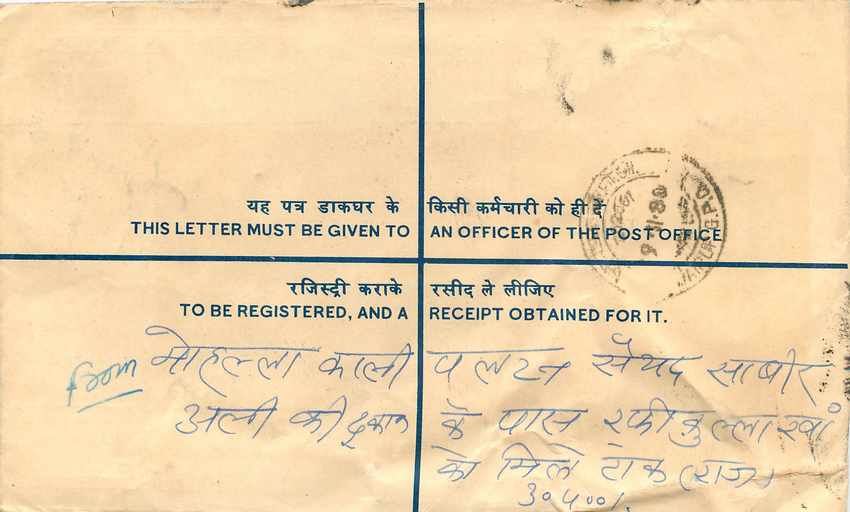 यह पत्र डाकघर के किसी कर्मचारी को ही दें
THIS LETTER MUST BE GIVEN TO AN OFFICER OF THE POST OFFICE
रजिस्ट्री कराके रसीद ले लीजिए
TO BE REGISTERED, AND A RECEIPT OBTAINED FOR IT.
from मोहल्ला काली पलटन सैयद साबीर
अली की दूकान के पास रफीकुल्ला खां
को मिले टोंक (राज)
३०५००१